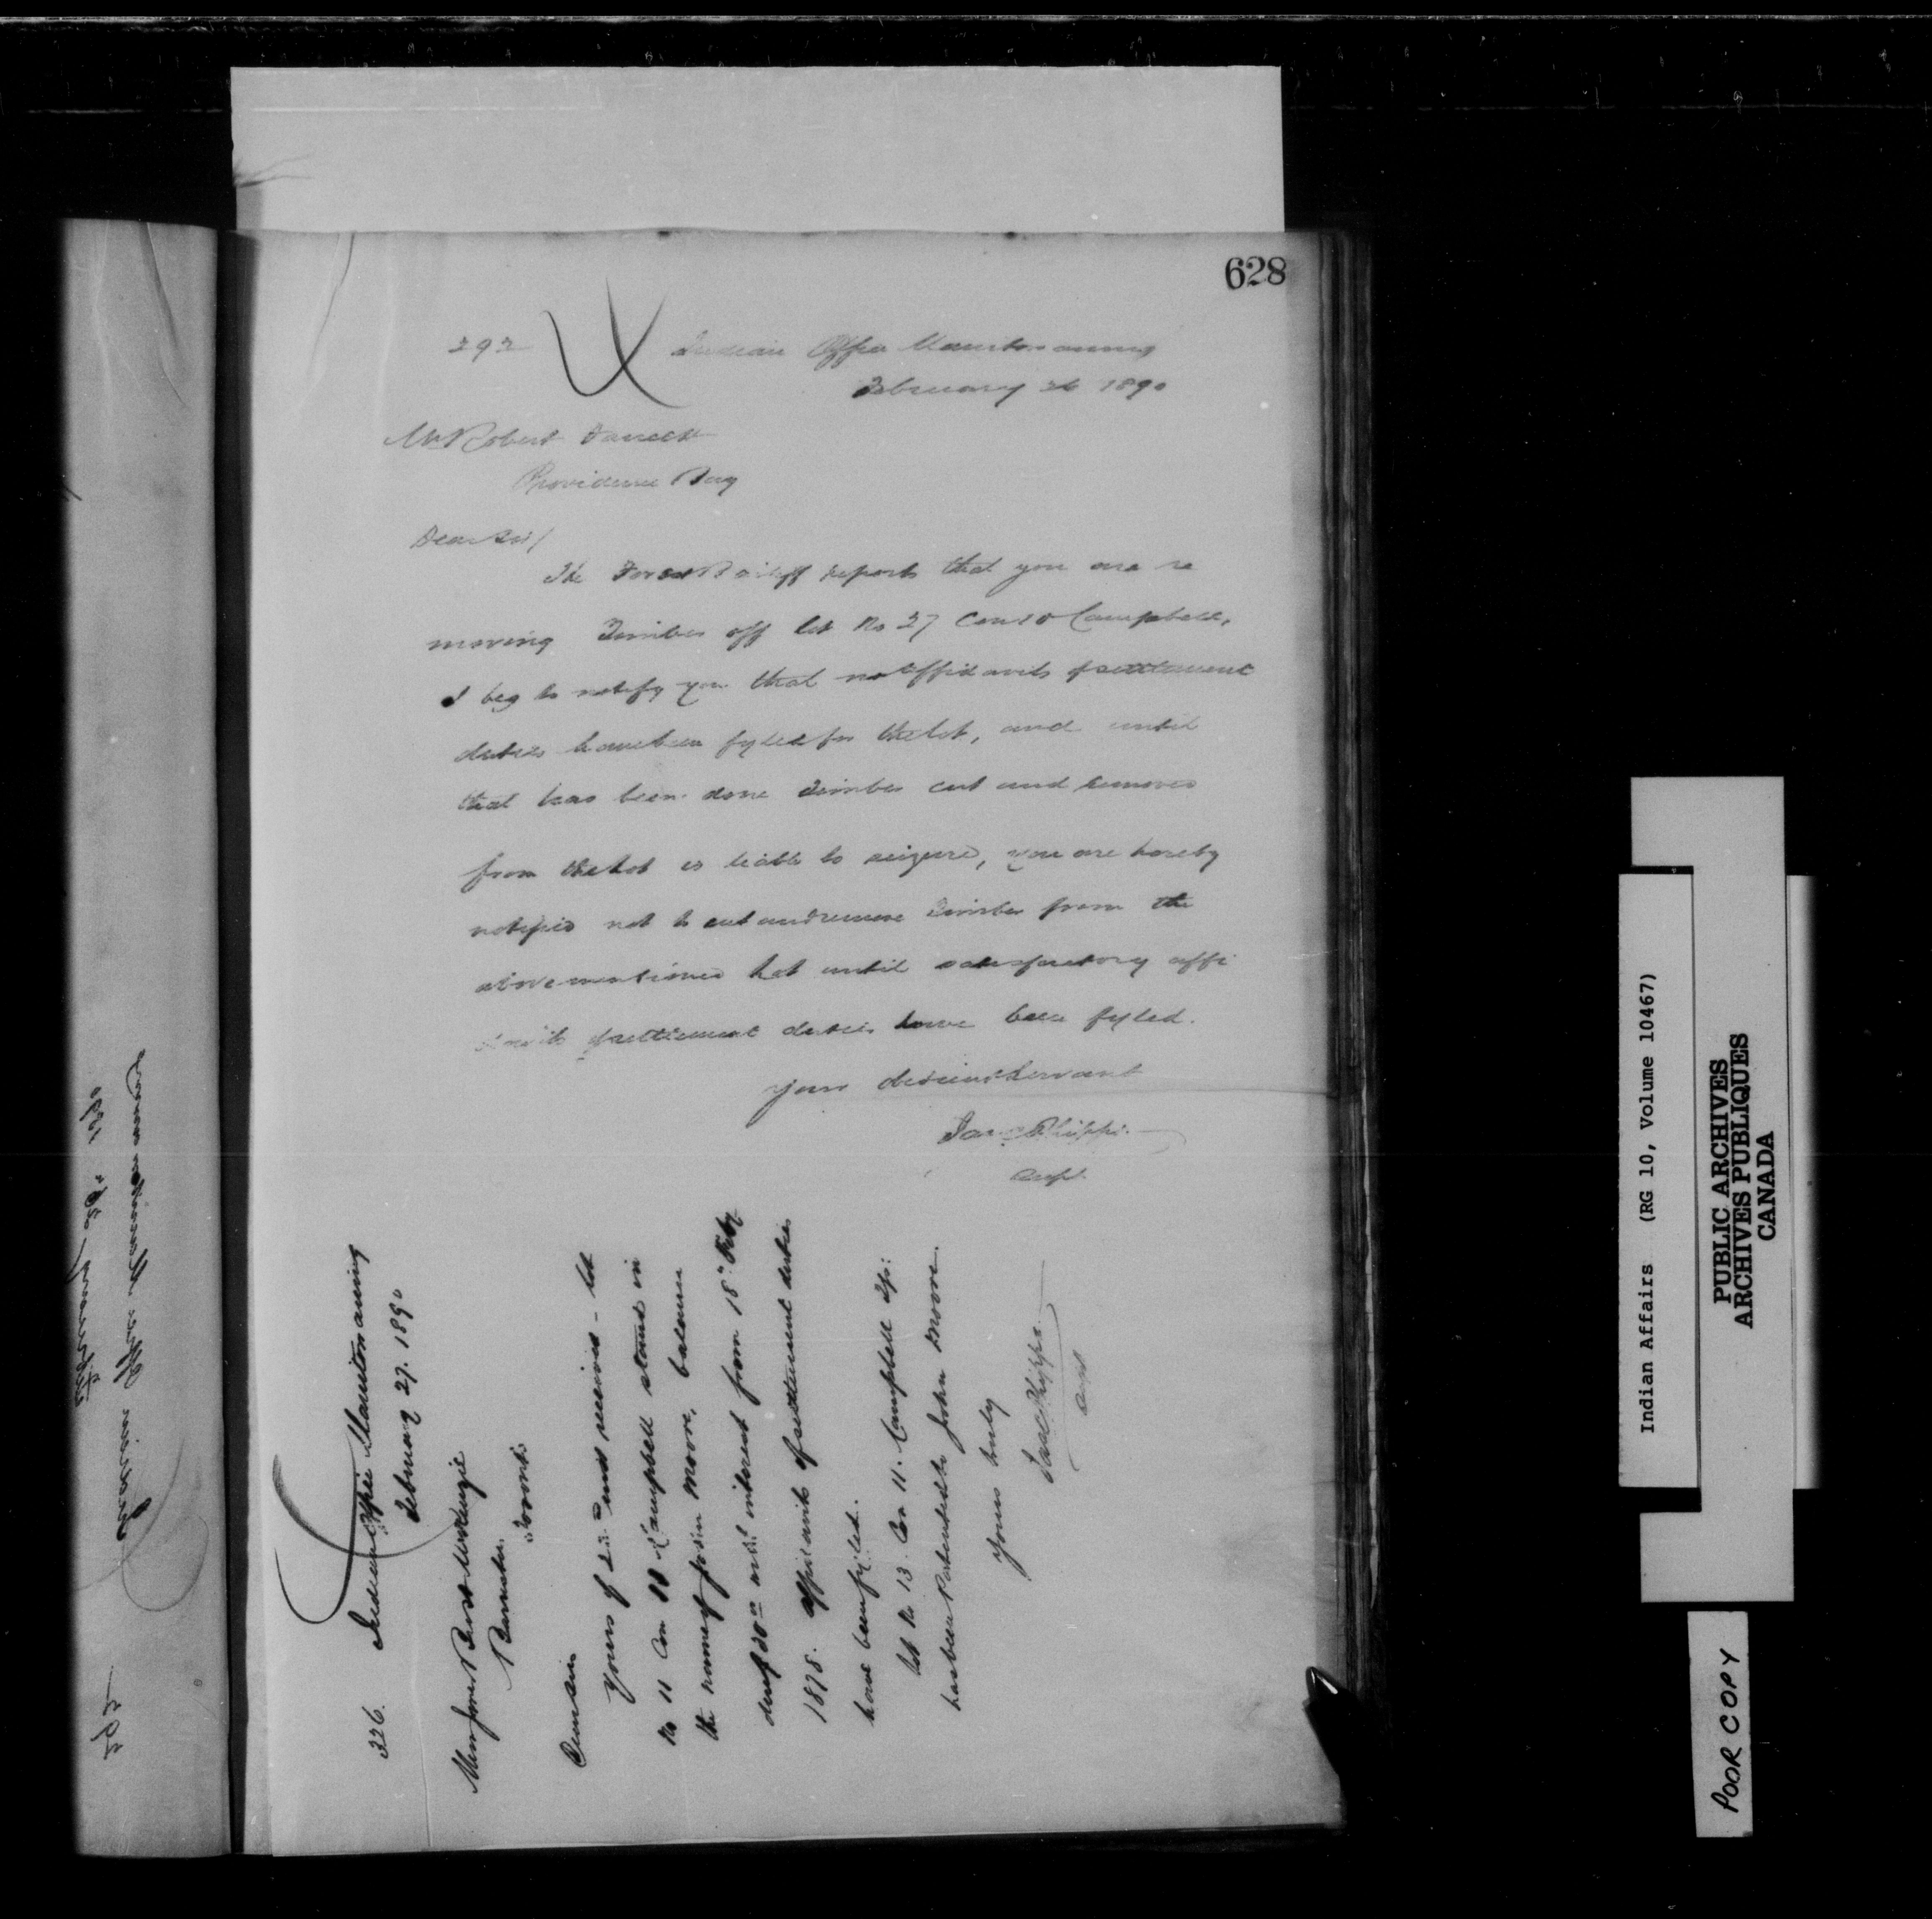 628
292
Indian Office Manitowaning
February 26 1890
Mr Robert
Providence Bay
Dear Sir/
The Forest Bailiff reports that you are re
moving Timber off lot No 27 Con 10 Campbell,
I beg to notify you that no affidavits of settlement
duties have been fyled for the lot, and until
that has been done Timber cut and removed
from the lot is liable to seizure, you are hereby
notified not to cut and remove Timber from the
above mentioned lot until satisfactory affi
davits of settlement duties have been fyled.
Your obedient Servant
Jas C Phipps
Supt.
326. Indian Office Manitowaning
February 27. 1890
Barristers
Toronto
Dear Sirs
Yours of inst received - lot
No 11 Con 11 Campbell stands in
the name of John Moore, balance
due with interest from 18th Feby
1878. affidavits of settlement duties
have been fyled.
lot No 13. Con 11. Campbell Tp:
has been Patented to John Moore.
Yours truly
Jas C Phipps.
Supt
292
Indian Office Manitowaning
February 28. 1890
Indian Affairs (RG 10, Volume 10467)
PUBLIC ARCHIVES
ARCHIVES PUBLIQUES
CANADA
POOR COPY